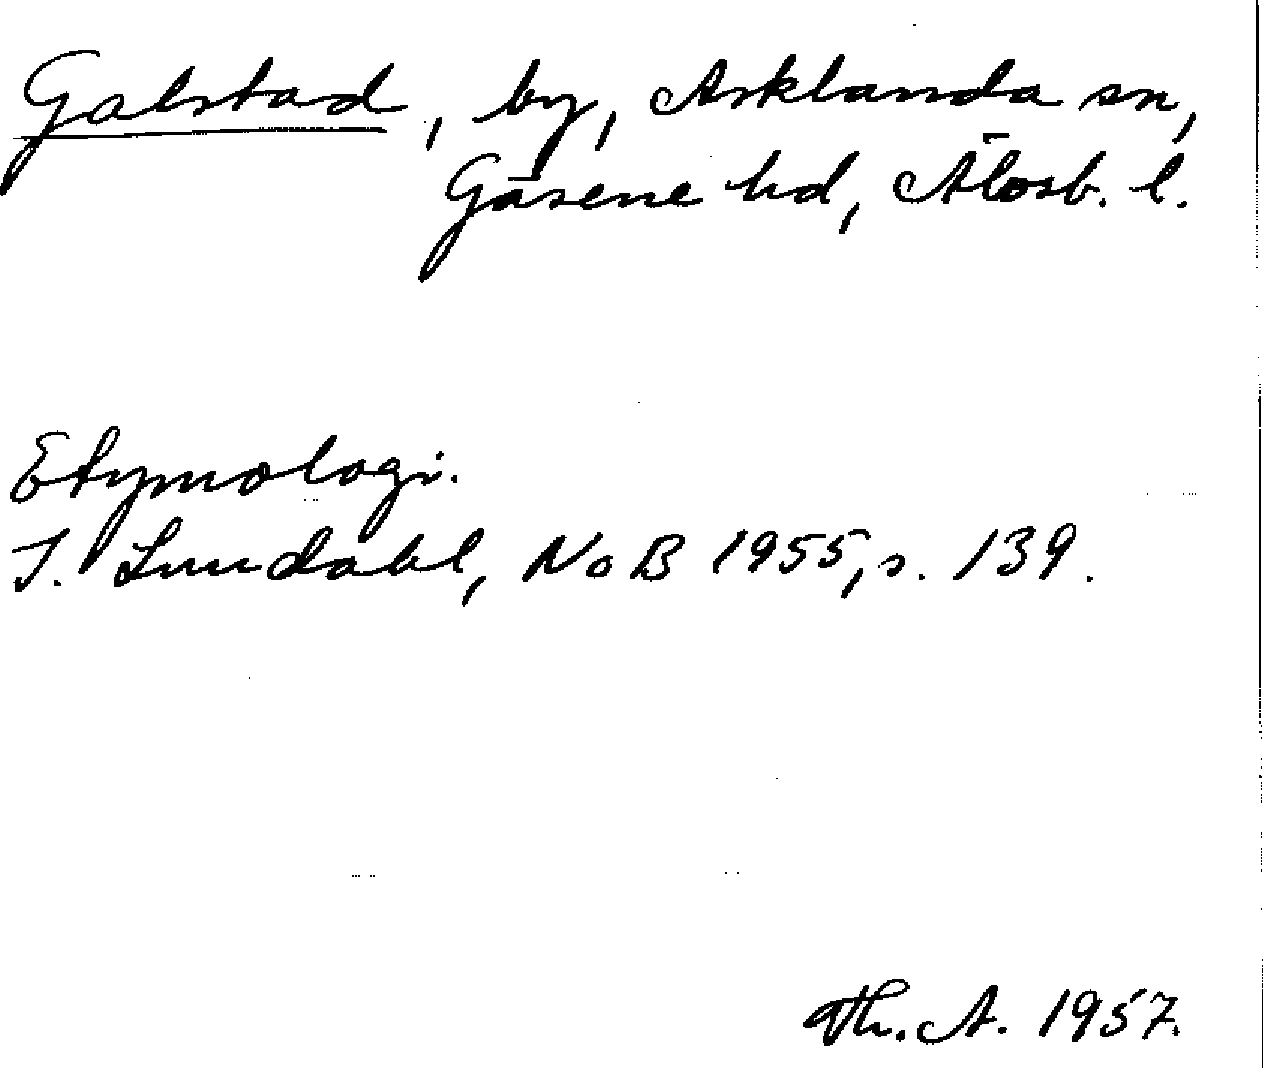 Galstad, by, Asklanda sn,
Gäsene hd, Älvsb. l.
Etymologi.
I. Lundahl, NoB 1955, s. 139.
Th. A. 1957.